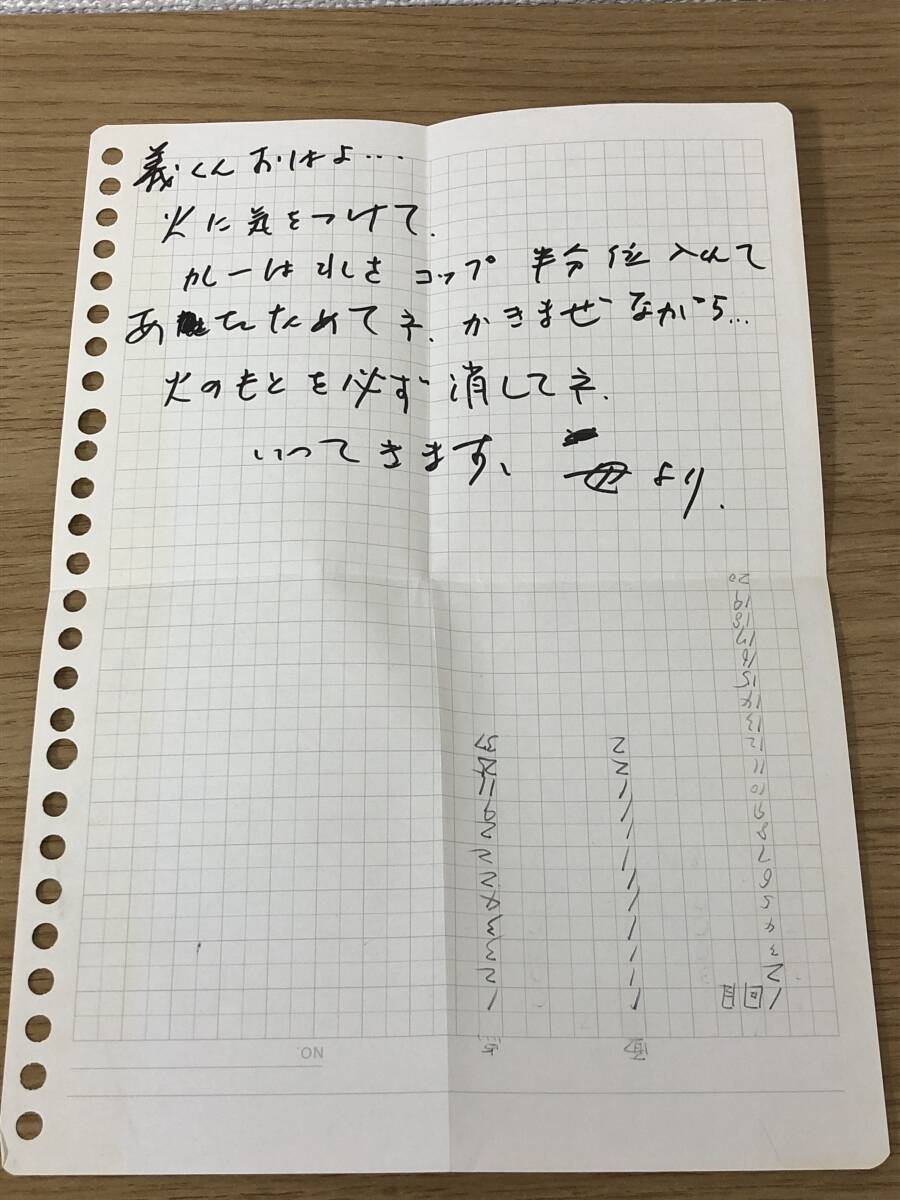 義くん おはよ…
火に気をつけて.
カレーは水をコップ半分位入れて
あたためてネ.かきまぜながら…
火のもとを必ず消してネ.
いってきます、
母より.
NO.
1回目
2
3
4
5
6
7
8
9
10
11
12
13
14
15
16
17
18
19
20
1
1
1
1
1
1
1
1
1
1
2
2
1
2
3
3
4
2
2
2
9